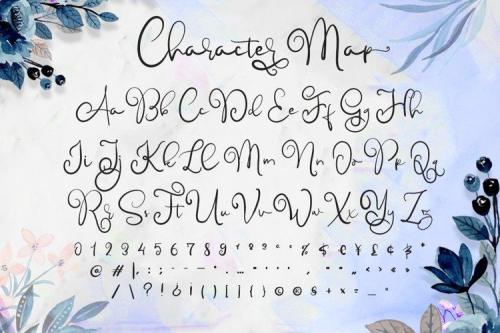 Character Map
Aa Bb Cc Dd Ee Ff Gg Hh
Ii Jj Kk Ll Mm Nn Oo Pp Qq
Rr Ss Ft Uu Vv Ww Xx Yy Zz
0 1 2 3 4 5 6 7 8 9
@ # | . : ; - – — _
/ \ ? ! ¿ ¡ ( ) [ ] { } © ® $ + × = _